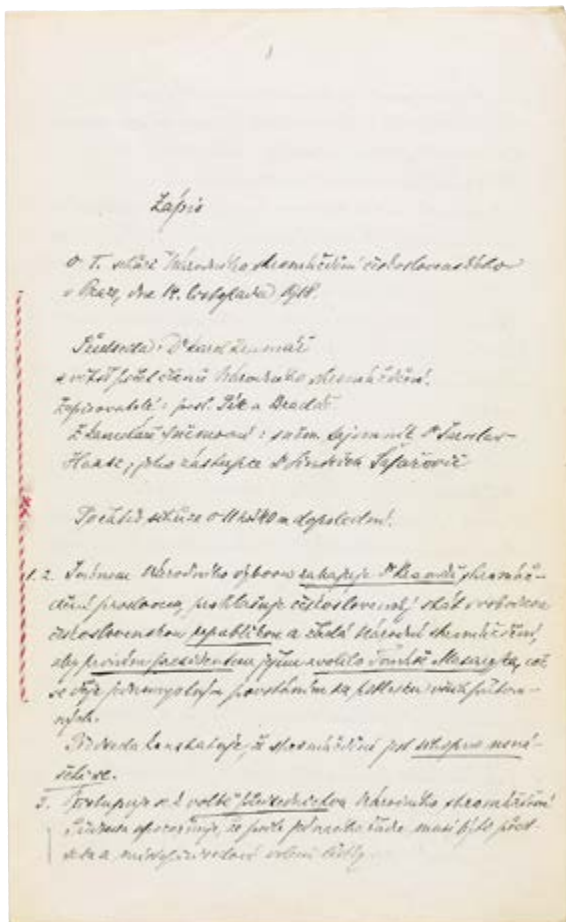 Zápis
o I. schůzi Národního shromáždění československého
v Praze, dne 14. listopadu 1918.
Předseda: Dr Karel Kramář
a větší počet členů Národního shromáždění.
Zapisovatelé: posl. Pik a Bradáč
Z kanceláře sněmovní: sněm. tajemník Dr Jaroslav
jeho zástupce Dr Jindřich
Počátek schůze o 11 h 40 m dopoledne.
1. 2. Jménem Národního výboru zahajuje Dr Kramář shromáž-
dění proslovem, prohlašuje československý stát svobodnou
československou republikou a žádá Národní shromáždění,
aby prvním presidentem jejím zvolilo Tomáše Masaryka, což
se děje jednomyslným povstáním za potlesku všech přítom-
ných.
Předseda konstatuje, že shromáždění jest schopno
3. Postupuje se k volbě předsednictva Národního shromáždění
Předseda upozorňuje, že podle jednacího řádu musí býti před-
seda a místopředsedové voleni lístky.